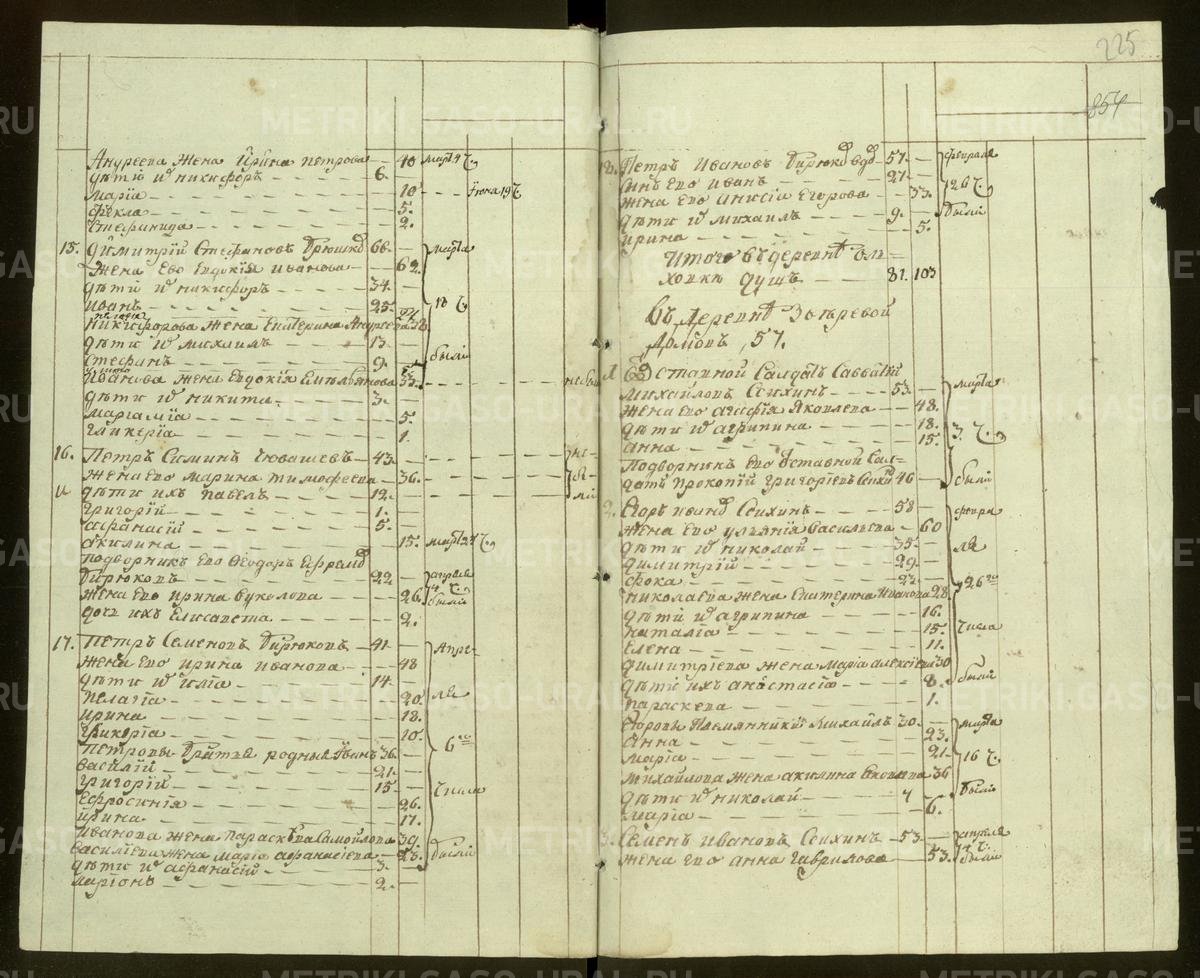 225
854
Андреева жена Ирина Петрова — 40 марта 4 ч.
дѣти и͠ Никифоръ — 6.
Марiа — 10 — Июня 19 ч.
Фекла — 5.
Стефанида — 2.
15. Димитрiй Стефановъ Брюшко 66. марта
Жена его Евдокiя Иванова — 62.
дѣти и͠ Никифоръ — 34.
Иванъ — 25. 18 ч
Пелагiя 24
Никифорова жена Екатерина Андреева
дѣти и͠ Михаилъ — 13
Стефанъ — 9. были
Иванова жена Евдокiя Емельянова 33. небы
дѣти и͠ Никита — 3.
Маргамiа — 5.
Гликерiа — 1.
16. Петръ Симинъ Чювашевъ — 43. не-
Жена его Марина Тимофеева — 36. бы-
дѣти ихъ Павелъ — 12. ли
Григорiй — 1.
Афанасiй — 5.
Акилина — 15. марта 24 ч.
Подворникъ его Ѳеодоръ Ефремо
Бирюковъ — 22 апреля
Жена его Ирина Вуколова — 26. были
дочь ихъ Елисавета — 2.
17. Петръ Семеновъ Бирюковъ — 41 Апре-
Жена его Ирина Иванова — 48
дѣти и͠ Илiа — 14 — ля
Пелагiа — 20.
Ирина — 18.
Гликерiа — 10. 6го
Петровы братья родныя Иванъ 36.
Василiй — 21.
Григорiй — 15 числа
Ефросинiя — 26.
Ирина — 17.
Иванова жена Параскева Самойлова 39.
Василiева жена Марiа Афанасiева — 23. были
дѣти и͠ Афанасiй — 3.
Ларiонъ — 2.
18. Петръ Ивановъ Бирюковъ вдо — 57. февраля
Синъ его Иванъ — 27
Жена его Анисiя Егорова — 33. 26 ч
дѣти и͠ Михаилъ — 9. были
Ирина — 5.
Итого въ деревнѣ Ель=
ховкѣ душъ — 81. 103
Въ Деревнѣ Зверевой
Домовъ, 57.
1 Отставной Салдатъ Савватiй
Михайловъ Сеихинъ — 53. марта
Жена его Агафiя Яковлева — 48.
дѣти и͠ Агрипина — 18. 3. ч.
Анна — 15.
Подворникъ его отставной Сал=
датъ Прокопiй Григорiевъ 46 были
2. Егоръ Ивано Сеихинъ — 58 февра
Жена его Ульянiя Васильева — 60
дѣти и͠ Николай — 35. ля
Димитрiй — 29.
Фока — 22. 26го
Николаева жена Екатерина Иванова 28.
дѣти и͠ Агрипина — 16.
Наталiа — 15. числа
Елена — 11.
Димитрiева жена Марiа Алексiева 30
дѣти ихъ Анастасiа — 8. были
Параскева — 1.
Егоровы Племянники Михайлъ 30. марта
Анна — 23.
Марiа — 21. 16 ч
Михайлова жена Акилина Яковлева 36
дѣти и͠ Николай — 4 были
Марiа — 6.
3. Семенъ Ивановъ Сеихинъ — 53. апреля
Жена его Анна Гаврилова — 53. были
METRIKI.GASO-URAL.RU